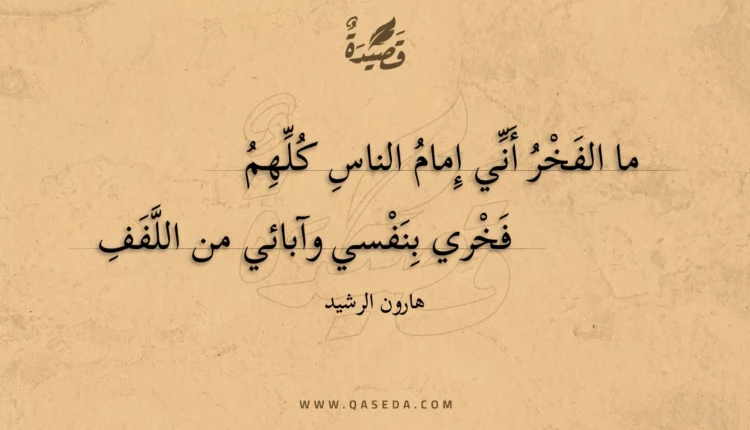 قَصِيْدَةٌ
ما الفَخْرُ أَنِّي إِمامُ الناسِ كُلِّهِمُ
فَخْري بِنَفْسي وآبائي من اللَّفَفِ
هارون الرشيد
WWW.QASEDA.COM